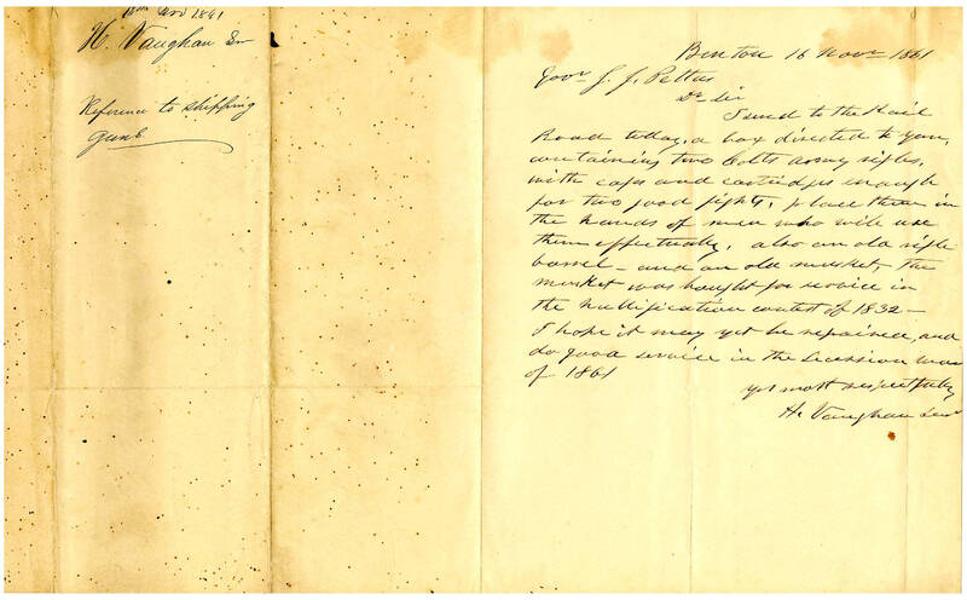 16th Nov 1861
H. Vaughan Sr
Reference to shipping
guns
Benton 16 Novr 1861
Govr J. J. Pettus
Dr Sir
I send to the Rail
Road today, a box directed to you,
containing two Colts army rifles,
with caps and cartridges enough
for two good fights, place them in
the hands of men who will use
them effectually, also an old rifle
barrel - and an old musket, the
musket was bought for service in
the Nullification contest of 1832 -
I hope it may yet be repaired, and
do good service in the Secession war
of 1861
yrs most respectfully
H. Vaughan Senr